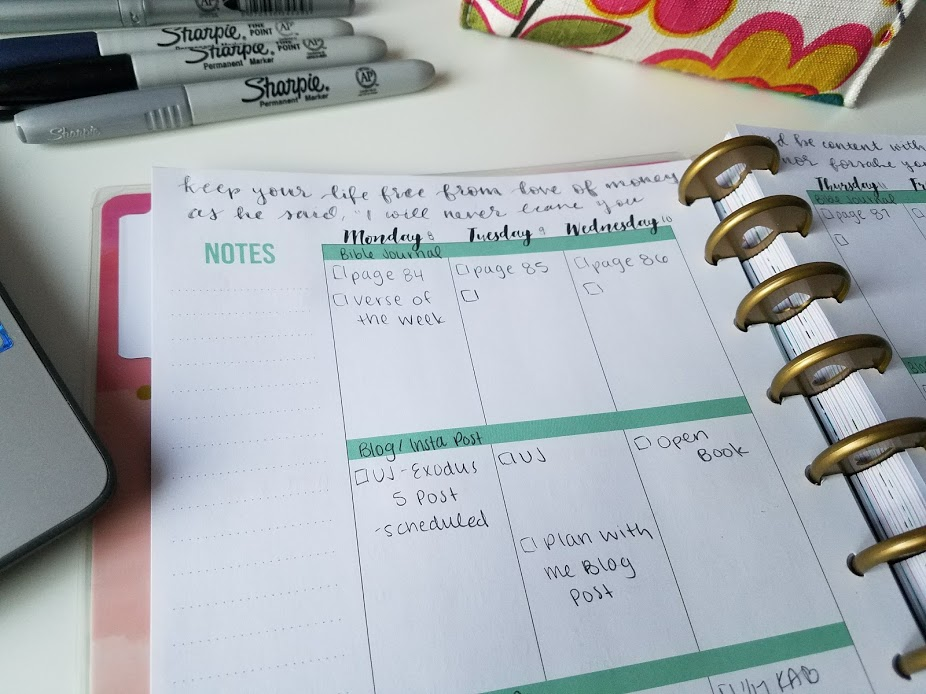 Sharpie
FINE POINT
AP
Sharpie
Permanent Marker
Sharpie
Permanent Marker
AP
Sharpie
keep your life free from love of money
as he said, "I will never leave you
NOTES
Monday 8
Tuesday 9
Wednesday 10
Bible Journal
page 84
verse of
the week
page 85
page 86
Blog/Insta Post
VJ-Exodus
5 Post
-scheduled
VJ
Plan with
me Blog
Post
Open
Book
KAB
be content with
nor forsake you
Thursday 11
Bible Journal
page 87